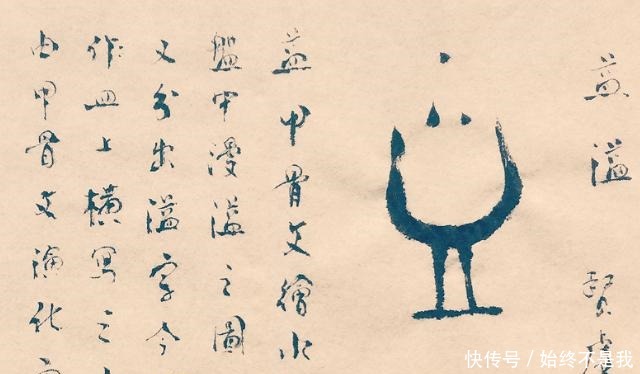 益溢
益甲骨文繪水
盤中漫溢之圖
又分出溢字今
作皿上橫寫之
由甲骨文演化
快传号／始终不是我